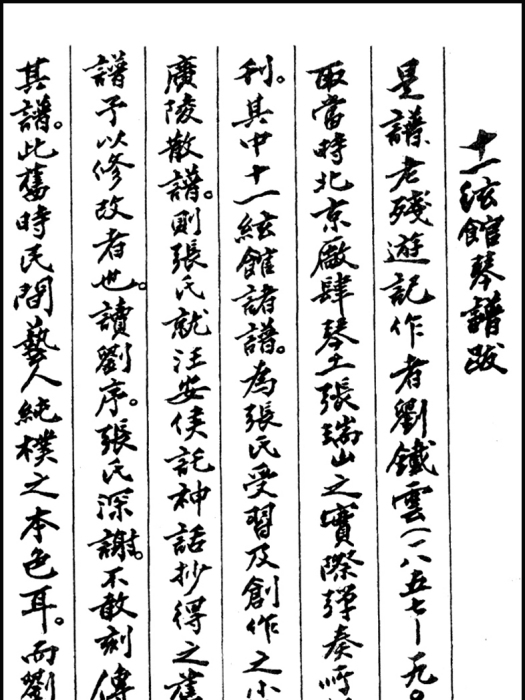 十一弦館琴譜跋
是譜老殘遊記作者劉鐵雲(一八五七—一九〇
取當時北京廠肆琴工張瑞山之實際彈奏所
刊。其中十一絃館諸譜。為張氏受習及創作之小
廣陵散譜。則張氏就汪安侯託神話抄得之舊
譜予以修改者也。讀劉序。張氏深謝。不敢刻傳
其譜。此舊時民間藝人純樸之本色耳。而劉